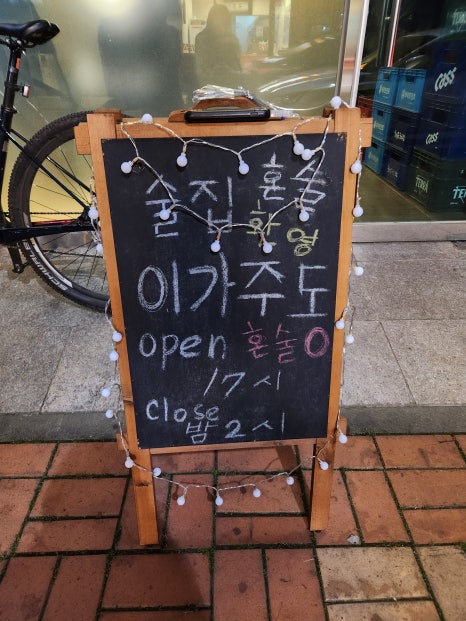 술집 혼술
환영
이가주도
open 혼술O
17시
close
밤2시
Cass
Cass
TERRA